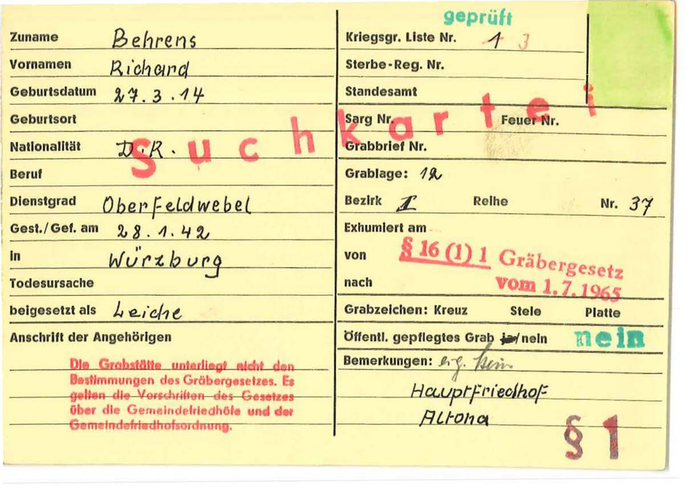 Zuname Behrens
Vornamen Richard
Geburtsdatum 27.3.14
Geburtsort
Nationalität D.R.
Beruf
Dienstgrad Oberfeldwebel
Gest./Gef. am 28.1.42
in Würzburg
Todesursache
beigesetzt als Leiche
Anschrift der Angehörigen
Die Grabstätte unterliegt nicht den
Bestimmungen des Gräbergesetzes. Es
gelten die Vorschriften des Gesetzes
über die Gemeindefriedhöfe und der
Gemeindefriedhofsordnung.
Suchkartei
geprüft
Kriegsgr. Liste Nr. 1 3
Sterbe-Reg. Nr.
Standesamt
Sarg Nr. Feuer Nr.
Grabbrief Nr.
Grablage: 12
Bezirk I Reihe Nr. 37
Exhumiert am
von § 16 (1) 1 Gräbergesetz
nach vom 1.7.1965
Grabzeichen: Kreuz Stele Platte
Öffentl. gepflegtes Grab ja/nein nein
Bemerkungen:
Hauptfriedhof
Altona
§ 1